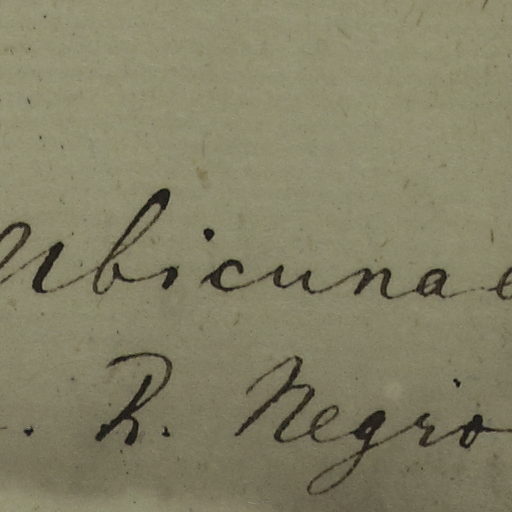 Ubicunae
. R. Negro